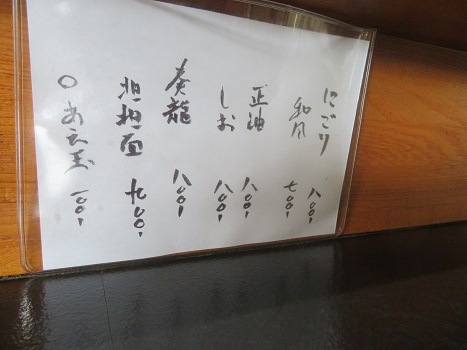 にごり 八〇〇、
和風 七〇〇、
正油 八〇〇、
しお 八〇〇、
奏龍 八〇〇、
担担面 九〇〇、
〇あえ玉 一〇〇、